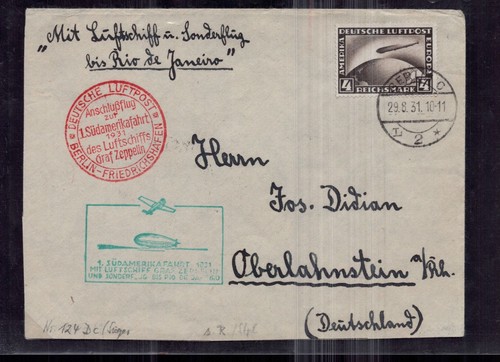 "Mit Luftschiff u. Sonderflug
bis Rio de Janeiro"
DEUTSCHE LUFTPOST
AMERIKA
EUROPA
4
4
REICHSMARK
29.8.31. 10-11
I 2 *
* DEUTSCHE LUFTPOST *
Anschlußflug
zur
1.Südamerikafahrt
1931
des Luftschiffs
Graf Zeppelin
BERLIN-FRIEDRICHSHAFEN
Herrn
Jos. Didian
Oberlahnstein a/Rh.
(Deutschland)
1. SÜDAMERIKAFAHRT 1931
MIT LUFTSCHIFF GRAF ZEPPELIN
UND SONDERFLUG BIS RIO DE JANEIRO